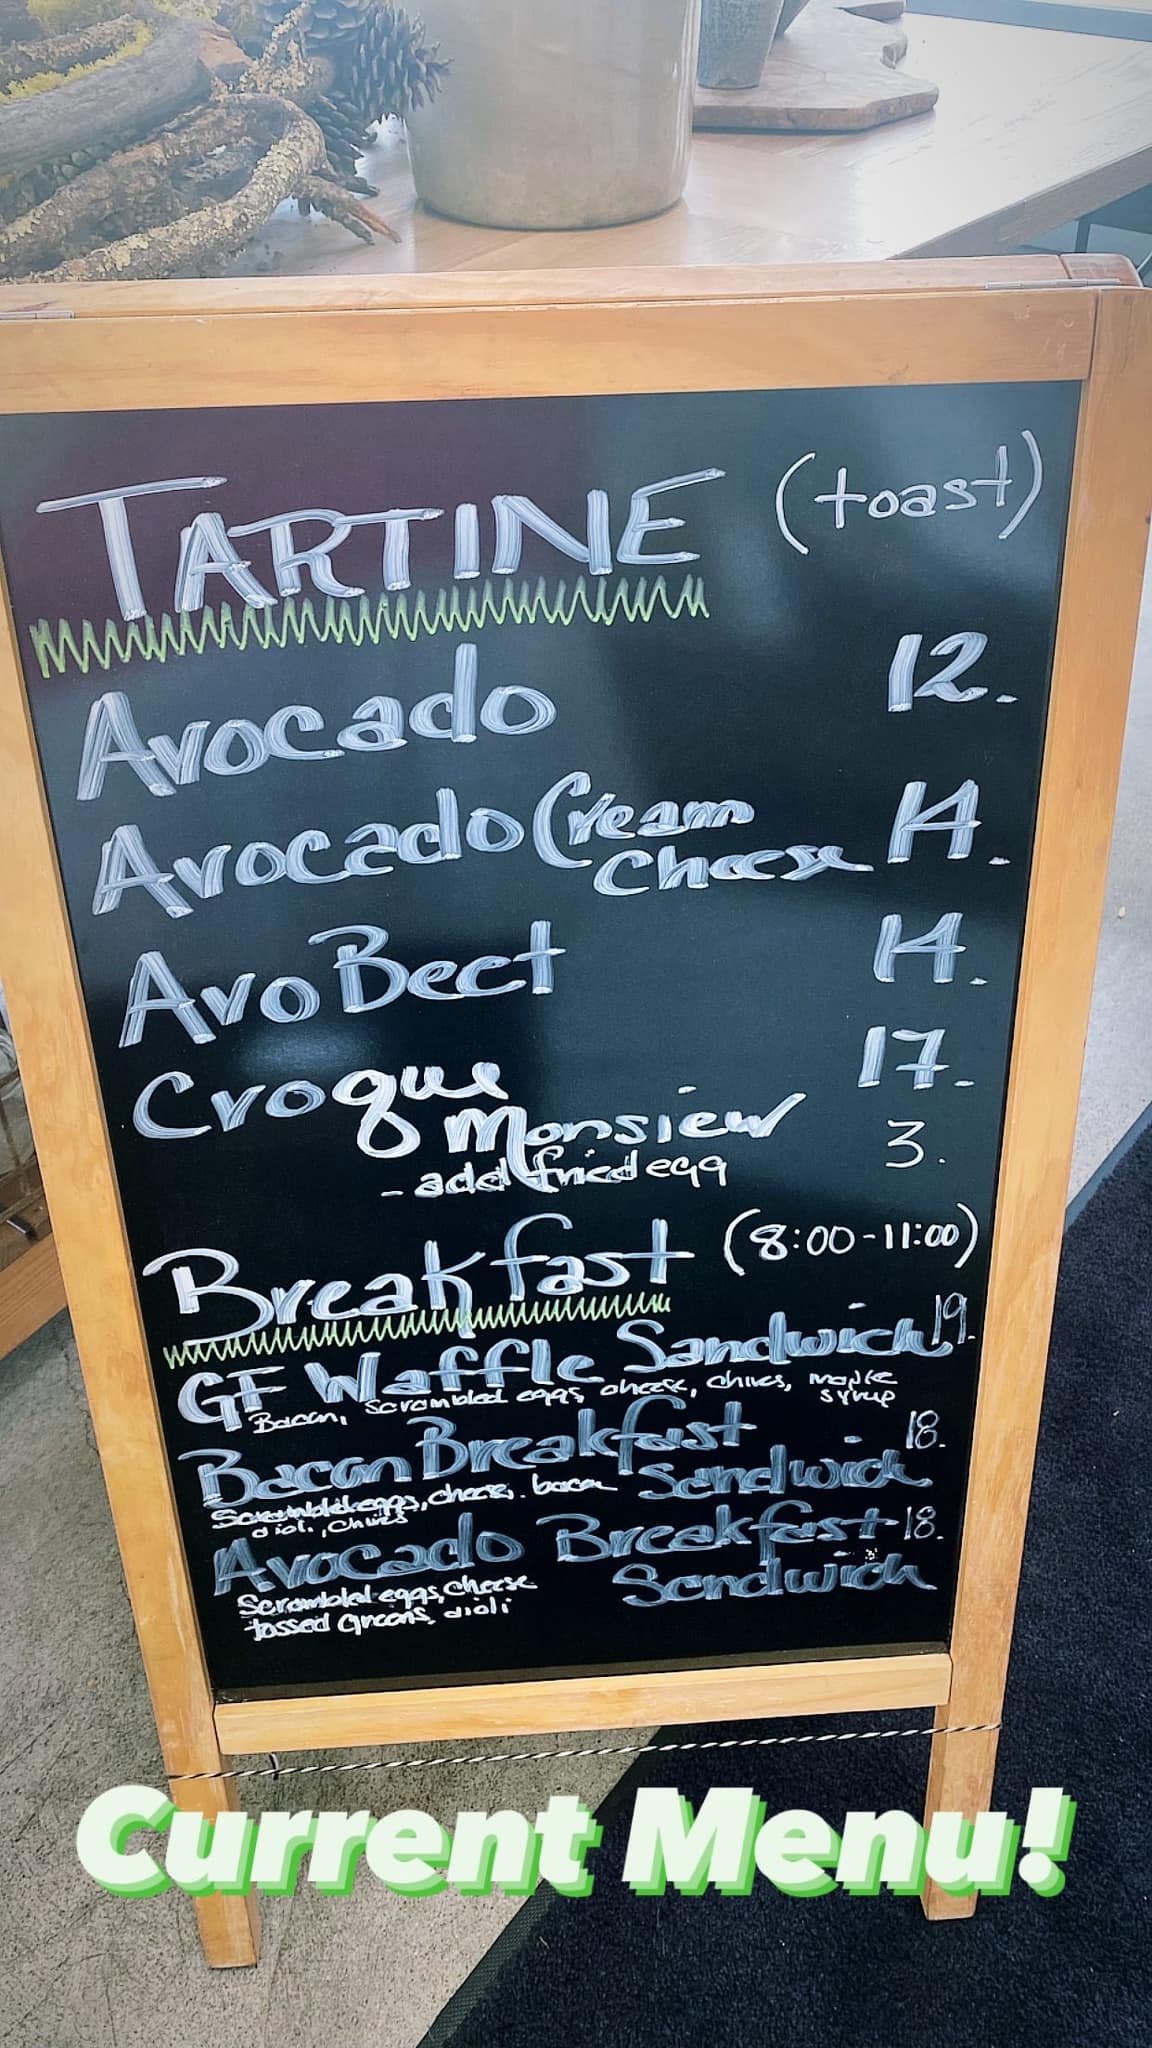 TARTINE (toast)
Avocado 12.
Avocado Cream Cheese 14.
Avo Beet 14.
Croque Monsieur 17.
- add fried egg 3.
Breakfast (8:00-11:00)
GF Waffle Sandwich 19.
Bacon, scrambled eggs, cheese, chives, maple syrup
Bacon Breakfast Sandwich 18.
Scrambled eggs, cheese, bacon
aioli, chives
Avocado Breakfast Sandwich 18.
Scrambled eggs, cheese
tossed Greens, aioli
Current Menu!